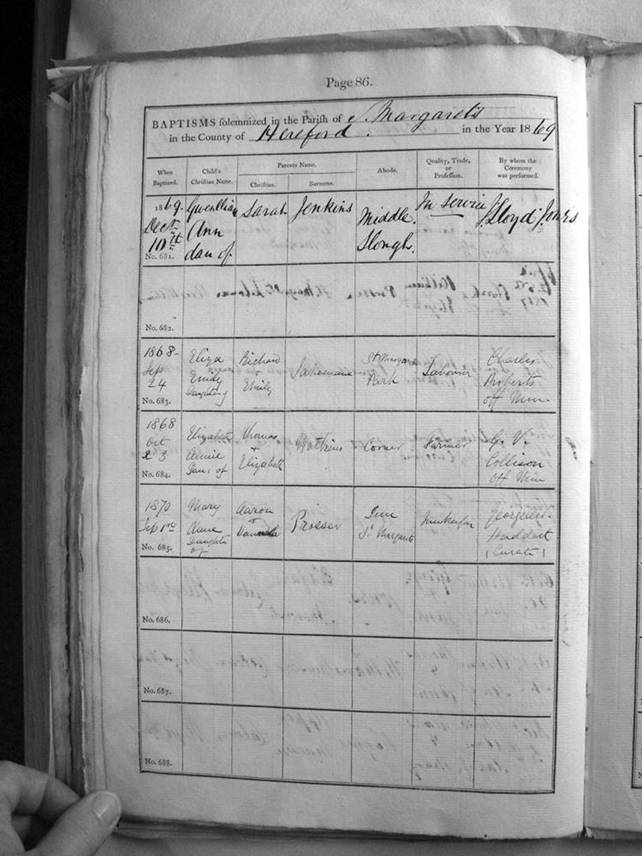 Page 86.
BAPTISMS solemnized in the Parish of St Margarets
in the County of Hereford. in the Year 1869
When Baptized.
Child's Christian Name.
Parents Name.
Christian.
Surname.
Abode.
Quality, Trade, or Profession.
By whom the Ceremony was performed.
1869.
Decr
10th
No. 681.
Gwenllian
Ann
dau of
Sarah
Jenkins
Middle
Slough.
In service
Lloyd Jones
No. 682.
1868-
Sep
24
No. 683.
Eliza
Emily
Richard
+
Emily
St Margarets
Park
Labourer
Charles
Roberts
off Min
1868
Oct
23
No. 684.
Elizabeth
Annie
Dau: of
Thomas
+
Elizabeth
Watkins
Corner
Farmer
G. V.
Collison
off Min
1870
No. 685.
Mary
Anne
Daughter
of
Aaron
Prosser
St Margarets
Huddart
(Curate)
No. 686.
No. 687.
No. 688.